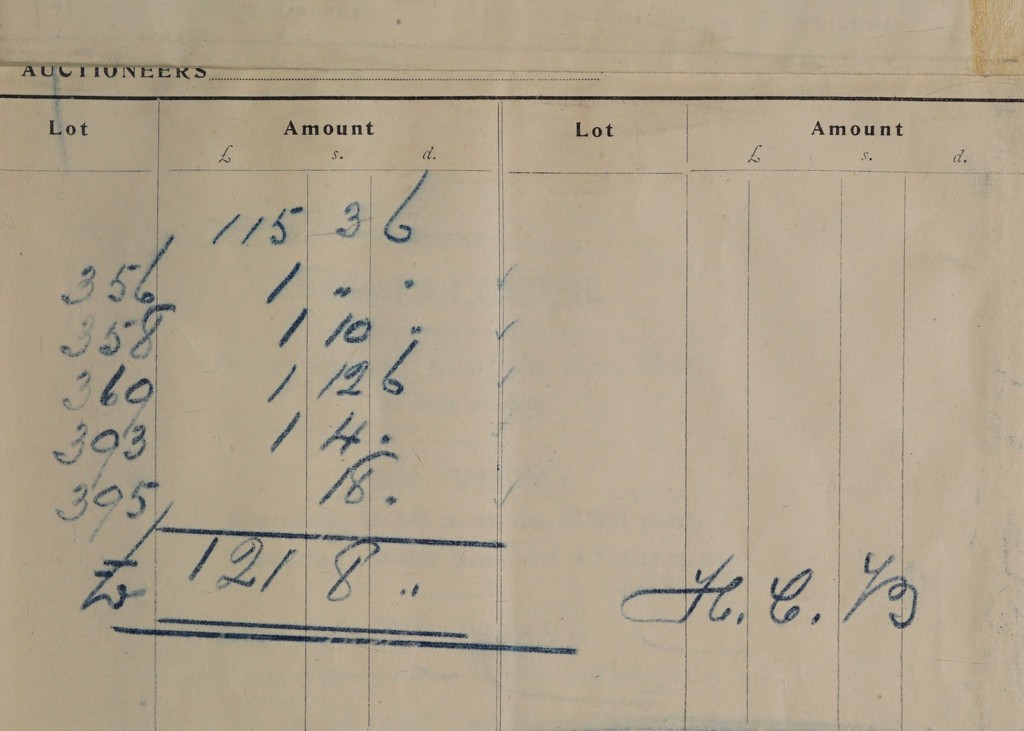 AUCTIONEERS
Lot Amount Lot Amount
£ s. d. £ s. d.
115 3 6
356 1 " .
358 1 10 .
369 1 12 6
393 1 4 .
395 18 .
£ 121 8 ..
H. C. B